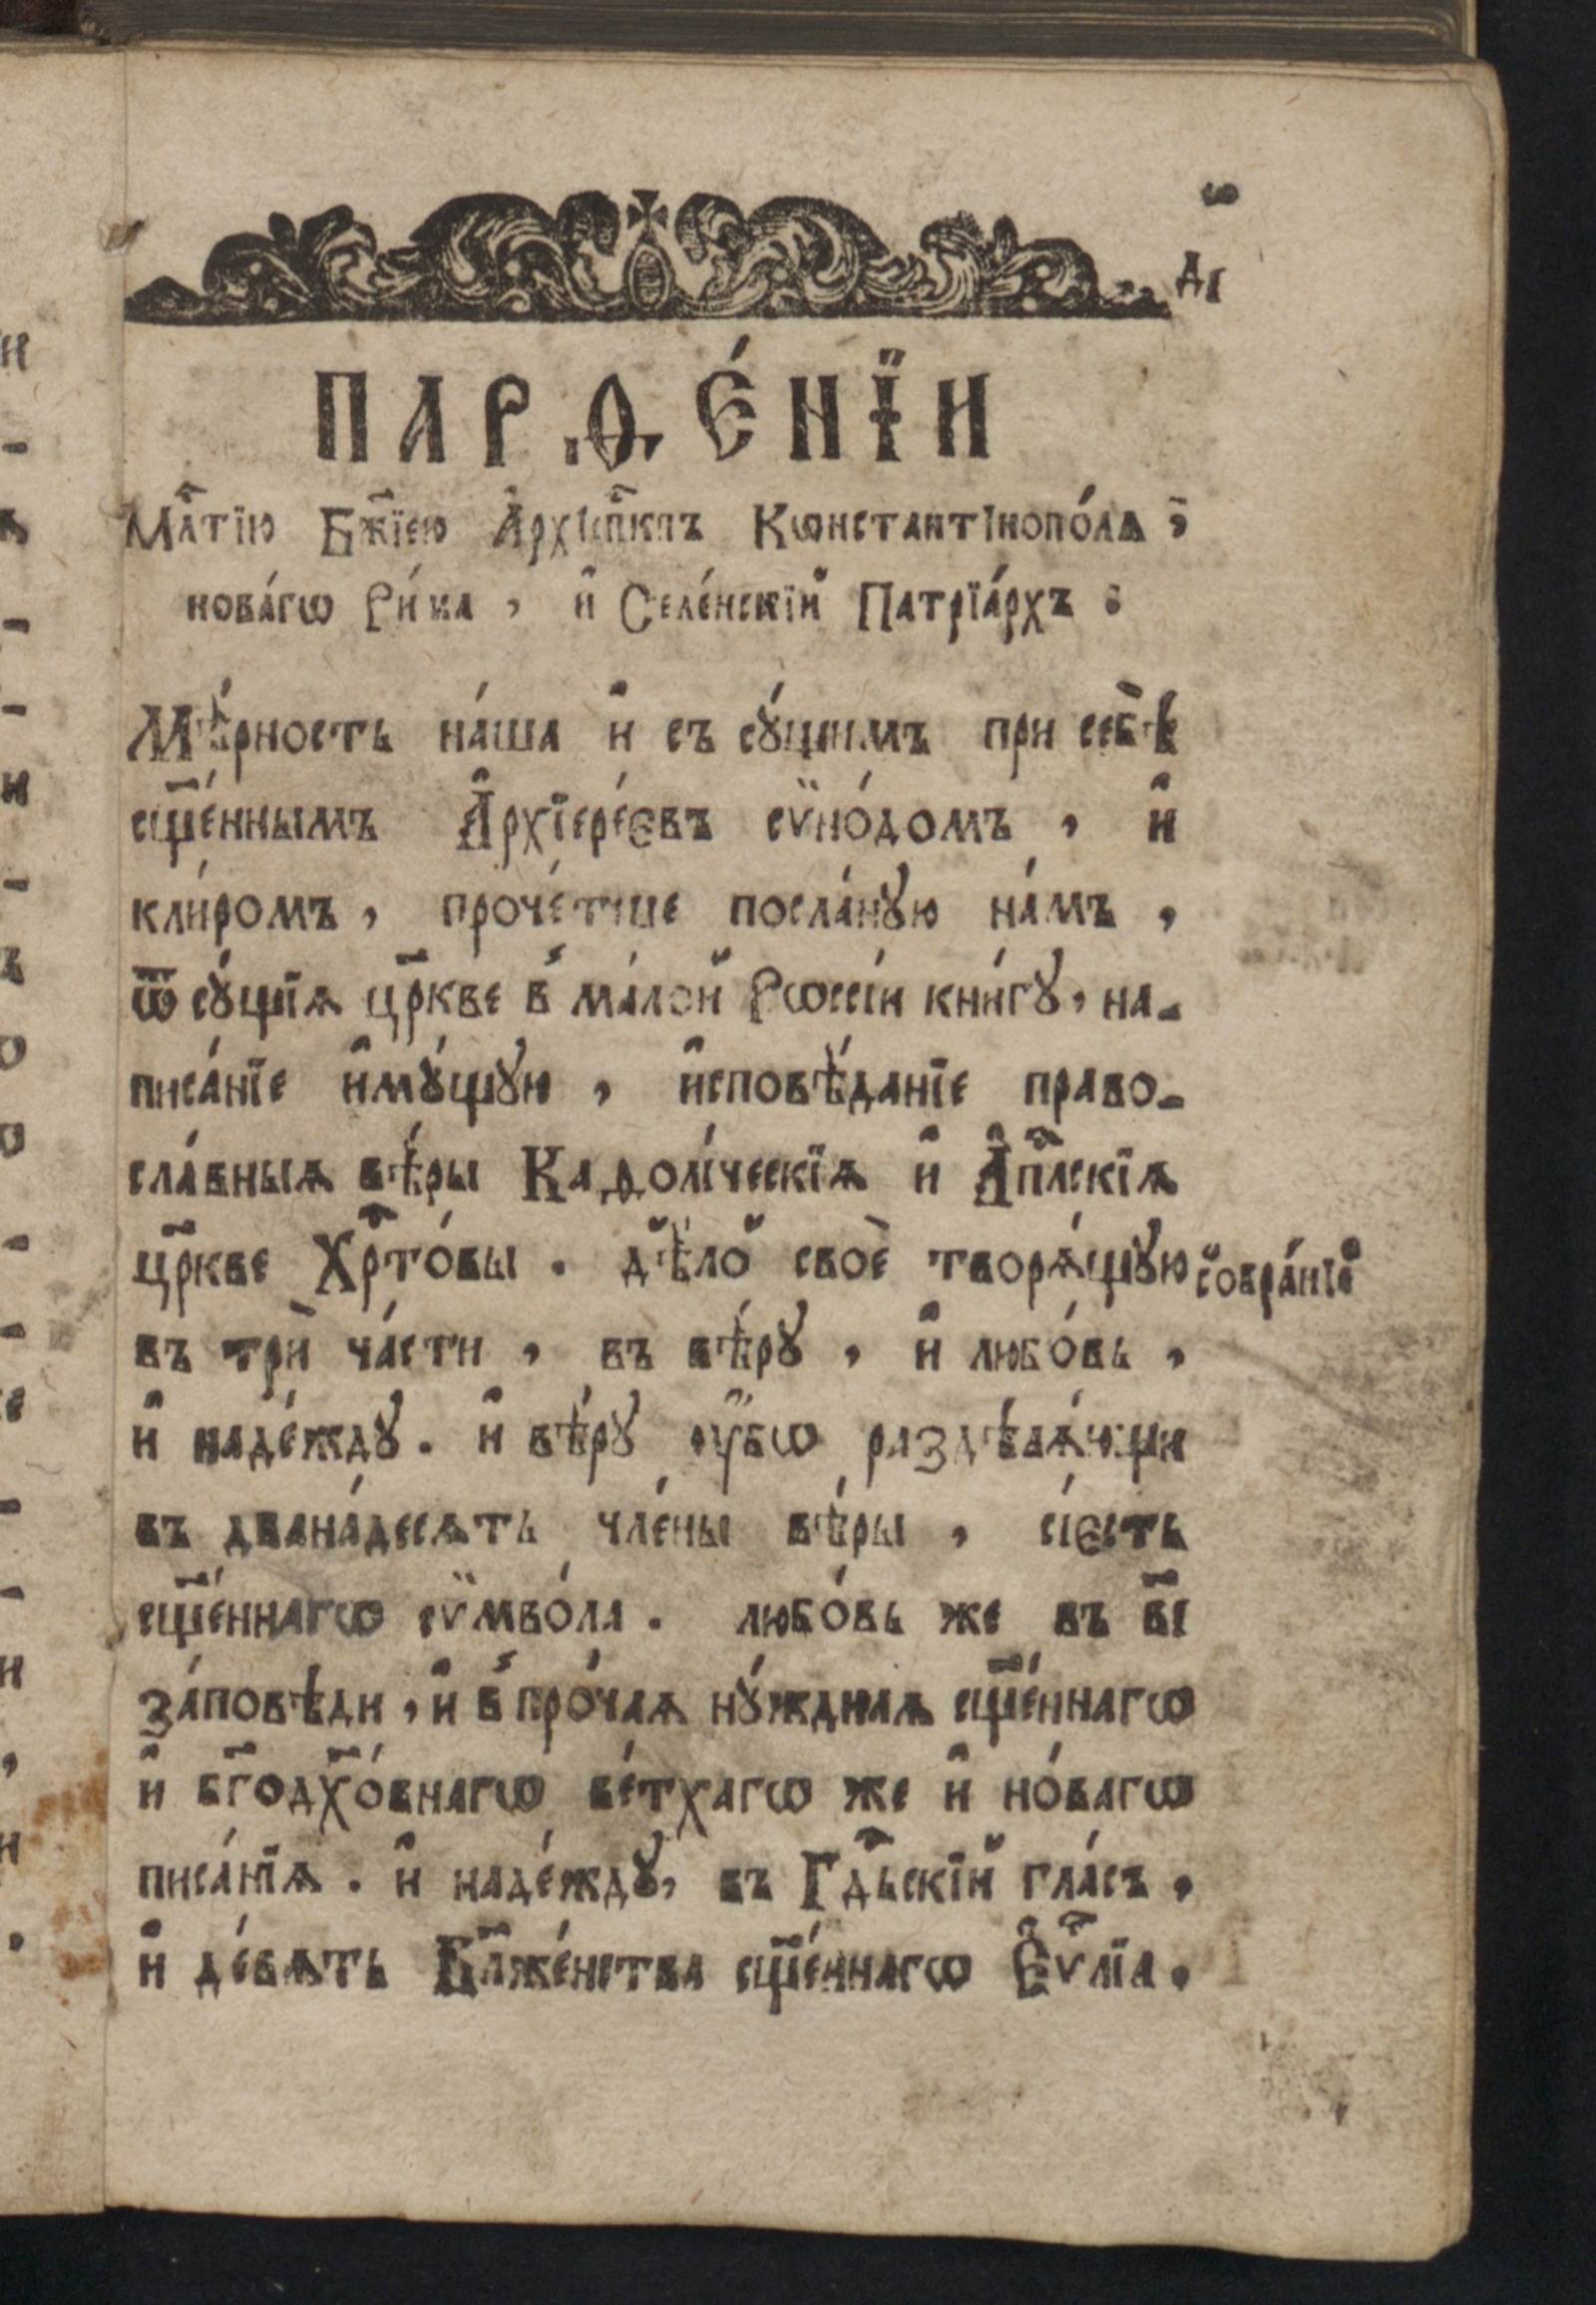 д҃і
ПАРѲЕ́НЇИ
Мл҃тїю Бж҃їею А҆рхїеп҃кпъ Кѡнстантїнопо́лѧ,
нова́гѡ Ри́ма, и҆ Селе́нскїй Патрїа́рхъ:
Мѣ́рность на́ша и҆ съ сꙋ́щимъ при себѣ̀
сщ҃е́ннымъ А҆рхїере́євъ сѷно́домъ, и҆
кли́ромъ, проче́тше посла́нꙋю на́мъ,
ѿ сꙋ́щїѧ цр҃кве в̾ ма́лой Рѡссі́и кни́гꙋ, на-
писа́нїе и҆мꙋ́щꙋю, и҆сповѣ́данїе право-
сла́вныѧ вѣ́ры Каѳолі́ческїѧ и҆ А҆п҃лскїѧ
цр҃кве Хр҃то́вы. дѣ́ло своѐ творѧ́щꙋю
собра́нїе
въ трѝ ча́сти, въ вѣ́рꙋ, и҆ любо́вь,
и҆ наде́ждꙋ. и҆ вѣ́рꙋ ѹ҆́бѡ раздѣлѧ́ющи
въ двана́десѧть чле́ны вѣ́ры, сі́єсть
сщ҃е́ннагѡ сѷмво́ла. любо́вь же въ в҃і
за́повѣди, и҆ в̾ про́чаѧ нꙋ́ждназ сщ҃е́ннагѡ
и҆ бг҃одх҃о́внагѡ ве́тхагѡ же и҆ но́вагѡ
писа́нїѧ. и҆ наде́ждꙋ, въ Гд҃ьскїй гла́съ,
и҆ де́вѧть Бл҃же́нства сщ҃е́ннагѡ Є҆ѵ҃лїа.